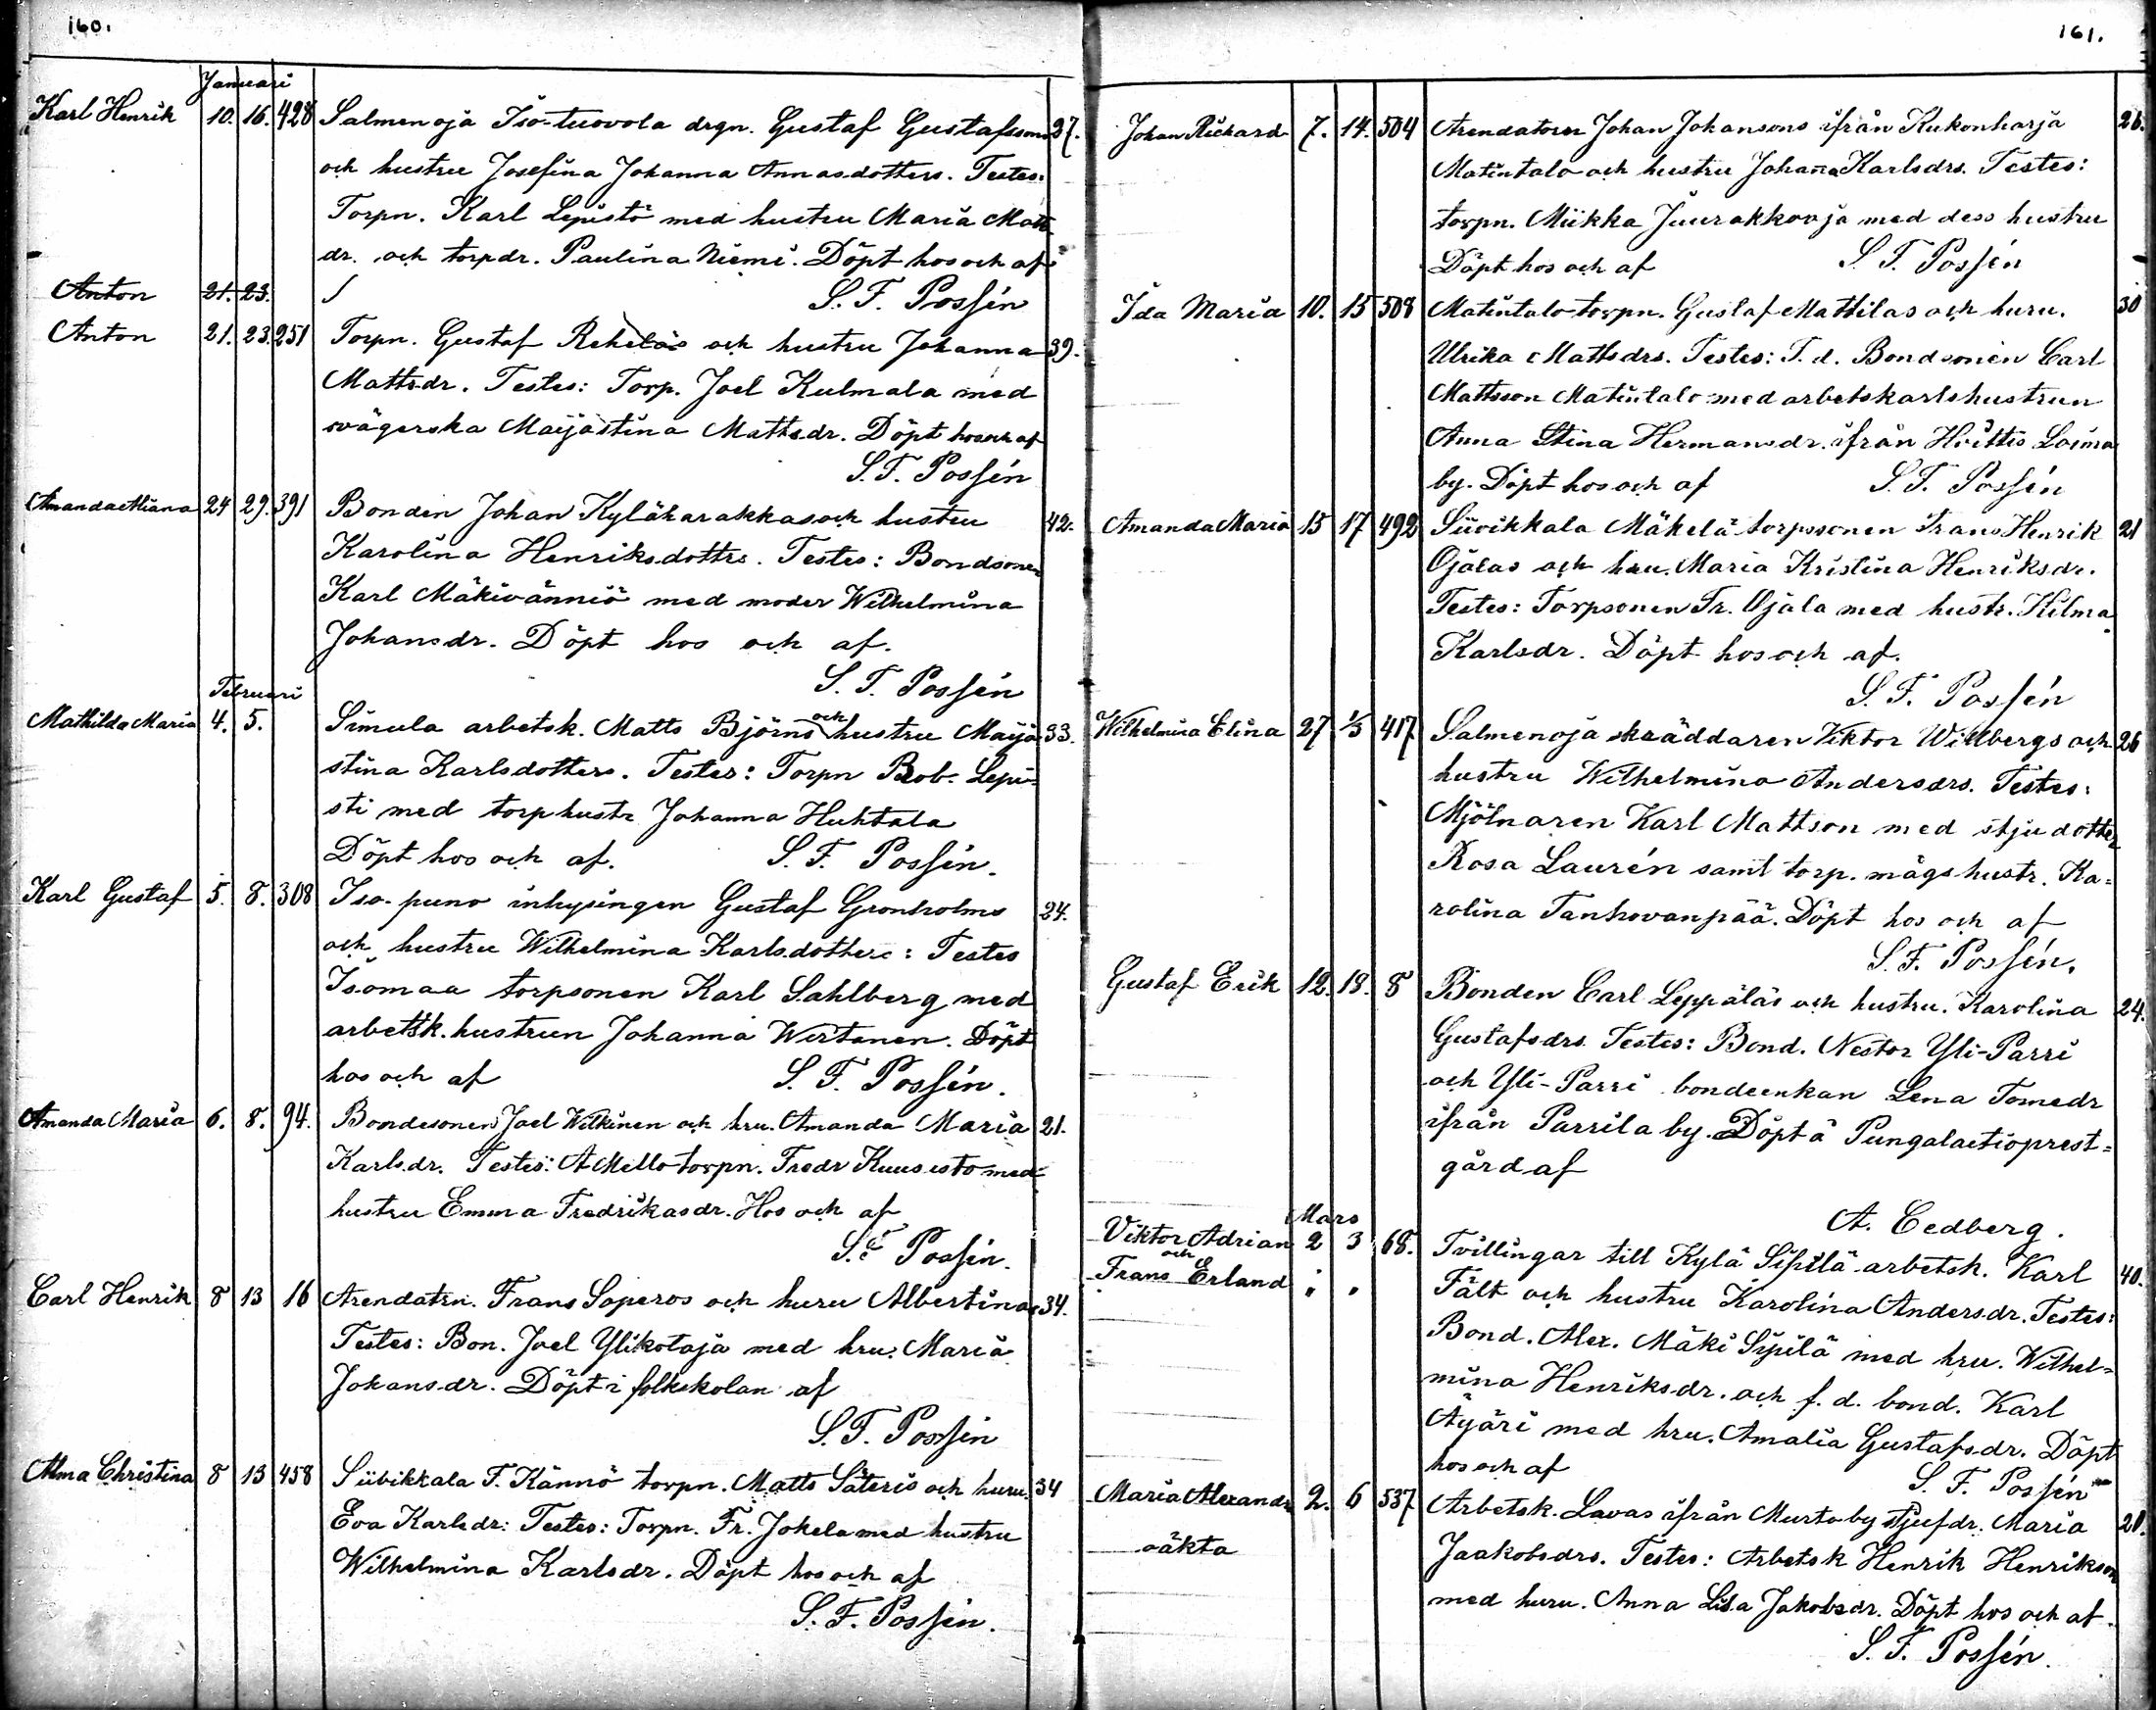 160.
Januari
Karl Henrik 10. 16. 428 Salmenoja Iso-tuovola drgn. Gustaf Gustafssons 37.
och hustru Josefina Johanna Annasdotters. Testes:
Torpn. Karl Lepistö med hustru Maria Matts
dr. och torpdr. Paulina Niemi. Döpt hos och af
Anton 21. 23. S. F. Possén
Anton 21. 23. 251 Torpn. Gustaf Rekolas och hustru Johanna 39.
Mattsdr. Testes: Torp. Joel Kulmala med
svägerska Maijastina Mattsdr. Döpt hos och af
S. F. Possén
Amanda Miina 24 29. 391 Bonden Johan Kyläkarakkas och hustru 42.
Karolina Henriksdottrs. Testes: Bondsonen
Karl Mäkivänniö med moder Wilhelmina
Johansdr. Döpt hos och af.
S. F. Possén
Februari
Mathilda Maria 4. 5. Simula arbetsk. Matts Björns och hustru Maija 33.
stina Karlsdotters. Testes: Torpn Rob. Lepi-
sti med torphustr Johanna Huhtala
Döpt hos och af. S. F. Possén.
Karl Gustaf 5. 8. 308 Iso-puno inhysingen Gustaf Gronholms 24.
och hustru Wilhelmina Karlsdotters: Testes
Isomaa torpsonen Karl Sahlberg med
arbetsk. hustrun Johanna Wirtanen. Döpt
hos och af S. F. Possén.
Amanda Maria 6. 8. 94. Bondesonen Joel Wilkinen och hru. Amanda Maria 21.
Karlsdr. Testes: A Mello torpn. Fredr Kuusisto med
hustru Emma Fredrikasdr. Hos och af
S. F. Possén.
Carl Henrik 8 13 16 Arendatrn. Frans Soperos och huru Albertinas 34.
Testes: Bon. Joel Ylikotaja med hru. Maria
Johansdr. Döpt i folkskolan af
S. F. Possén
Alma Christina 8 13 458 Siivikkala F. Kännö torpn. Matts Säteris och huru. 34
Eva Karlsdr: Testes: Torpn. Fr. Jokela med hustru
Wilhelmina Karlsdr. Döpt hos och af
S. F. Possén.
161.
Johan Rickard 7. 14. 504 Arendatorn Johan Johansons ifrån Kukonharja 26.
Matintalo och hustru Johana Karlsdrs. Testes:
torpn. Miikka Juurakkooja med dess hustru
Döpt hos och af S. F. Possén
Ida Maria 10. 15 508 Matintalo torpn. Gustaf Mattilas och huru. 30
Ulrika Mattsdrs. Testes: F. d. Bondsonen Carl
Mattsson Matintalo med arbetskarlshustrun
Anna Stina Hermansdr. ifrån Huittis Loima
by. Döpt hos och af S. F. Possén
Amanda Maria 15 17 492 Siivikkala Mäkelä torpsonen Frans Henrik 21
Ojalas och hru. Maria Kristina Henriksdr.
Testes: Torpsonen Fr. Ojala med hustr. Hilma
Karlsdr. Döpt hos och af.
S. F. Possén
Wilhelmina Elina 27 1/3 417 Salmenoja skräddaren Viktor Willbergs och 26
hustru Wilhelmina Andersdrs. Testes:
Mjölnaren Karl Mattson med stjudotter
Rosa Laurén samt torp. mågs hustr. Ka-
rolina Tanhovanpää. Döpt hos och af
S. F. Possén.
Gustaf Erik 12. 18. 8 Bonden Carl Leppäläs och hustru. Karolina 24.
Gustafsdrs. Testes: Bond. Nestor Yli-Parri
och Yli-Parri bondeenkan Lena Tomedr
ifrån Parrila by. Döpt å Pungalaitioprest-
gård af
A. Cedberg.
Mars
Viktor Adrian 2 3 68. Tvillingar till Kylä Sipilä arbetsk. Karl 40.
och
Frans Erland " " Fält och hustru Karolina Andersdr. Testes:
Bond. Alex. Mäki Sipilä med hru. Wilhel-
mina Henriksdr. och f. d. bond. Karl
Äyäri med hru. Amalia Gustafsdr. Döpt
hos och af S. F. Possén
Maria Alexandra 2. 6 537 Arbetsk. Lavas ifrån Murto by stjufdr. Maria 20.
oäkta Jaakobsdrs. Testes: Arbetsk Henrik Henrikson
med huru. Anna Lisa Jakobsdr. Döpt hos och af.
S. F. Possén.